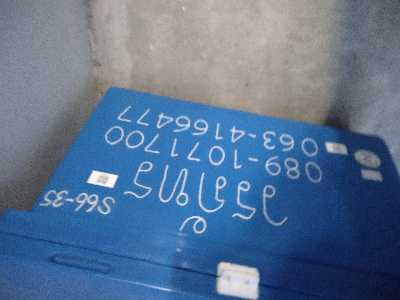 วรภัทร S66-35
089-1071700
063-4166477